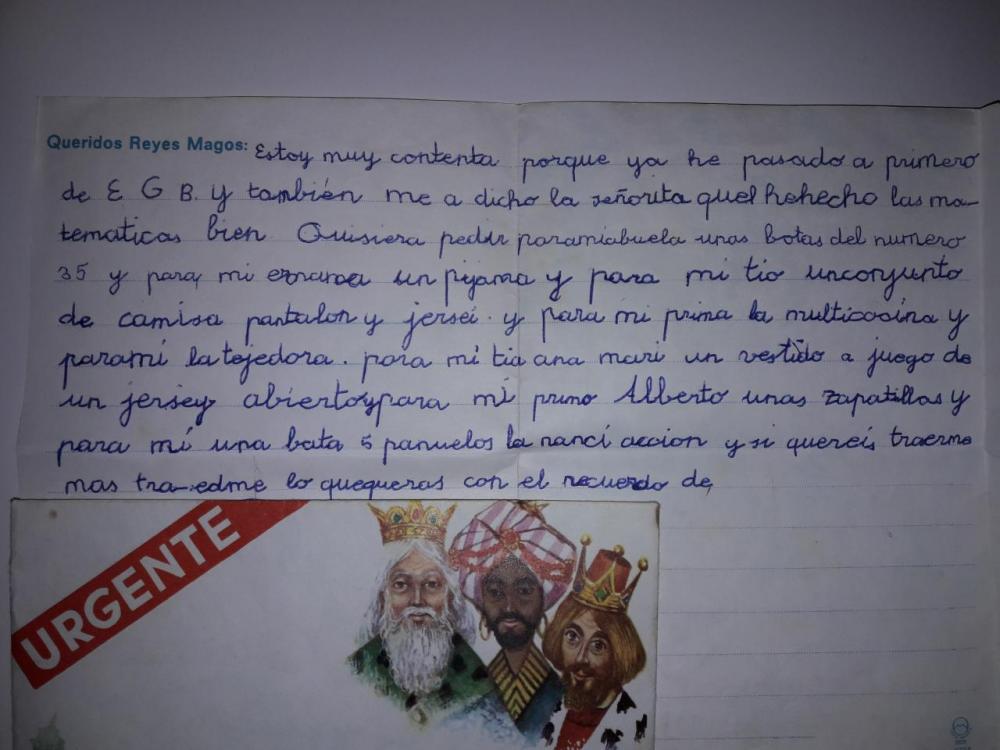 Queridos Reyes Magos: Estoy muy contenta porque ya he pasado a primero
de E G B. y también me a dicho la señorita quel hehecho las ma-
tematicas bien Quisiera pedir paramiabuela unas botas del numero
35 y para mi ermana un pijama y para mi tio unconjunto
de camisa pantalon y jersei. y para mi prima la multicocina y
parami latejedora. para mi tia ana mari un vestido a juego de
un jersey abiertoypara mi primo Alberto unas zapatillas y
para mí una bata 5 panuelos la nanci accion y si quereis traerme
mas tra-edme lo quequeras con el recuerdo de,
URGENTE